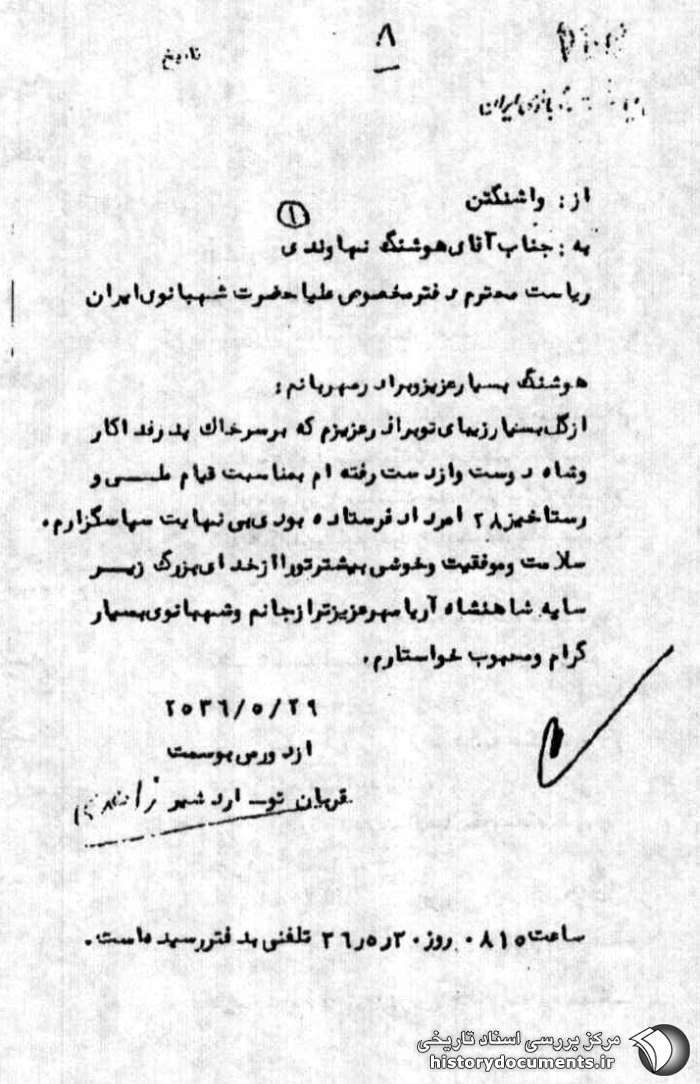 ۸
تاریخ
بانوی ایران
از : واشنگتن
۱
به : جناب آقای هوشنگ نهاوندی
ریاست محترم دفتر مخصوص علیاحضرت شهبانوی ایران
هوشنگ بسیار عزیز و برادر مهربانم :
از گل بسیار زیبای تو برادر عزیزم که بر سر خاک پدر فداکار
و شاه دوست و از دست رفته ام بمناسبت قیام ملــی و
رستاخیز ۲۸ امرداد فرستاده بودی بی نهایت سپاسگزارم .
سلامت و موفقیت و خوشی بیشتر تو را از خدای بزرگ زیــر
سایه شاهنشاه آریامهر عزیزتر از جانم و شهبانوی بسیار
گرام و محبوب خواستارم .
۲۵۳۶/۵/۲۹
از دور می بوسمت
قربان تو - اردشیر زاهدی
ساعت ۰۸۱۵ روز ۳۰ر۵ر۳۶ تلفنی بدفتر رسیده است .
مرکز بررسی اسناد تاریخی
historydocuments.ir